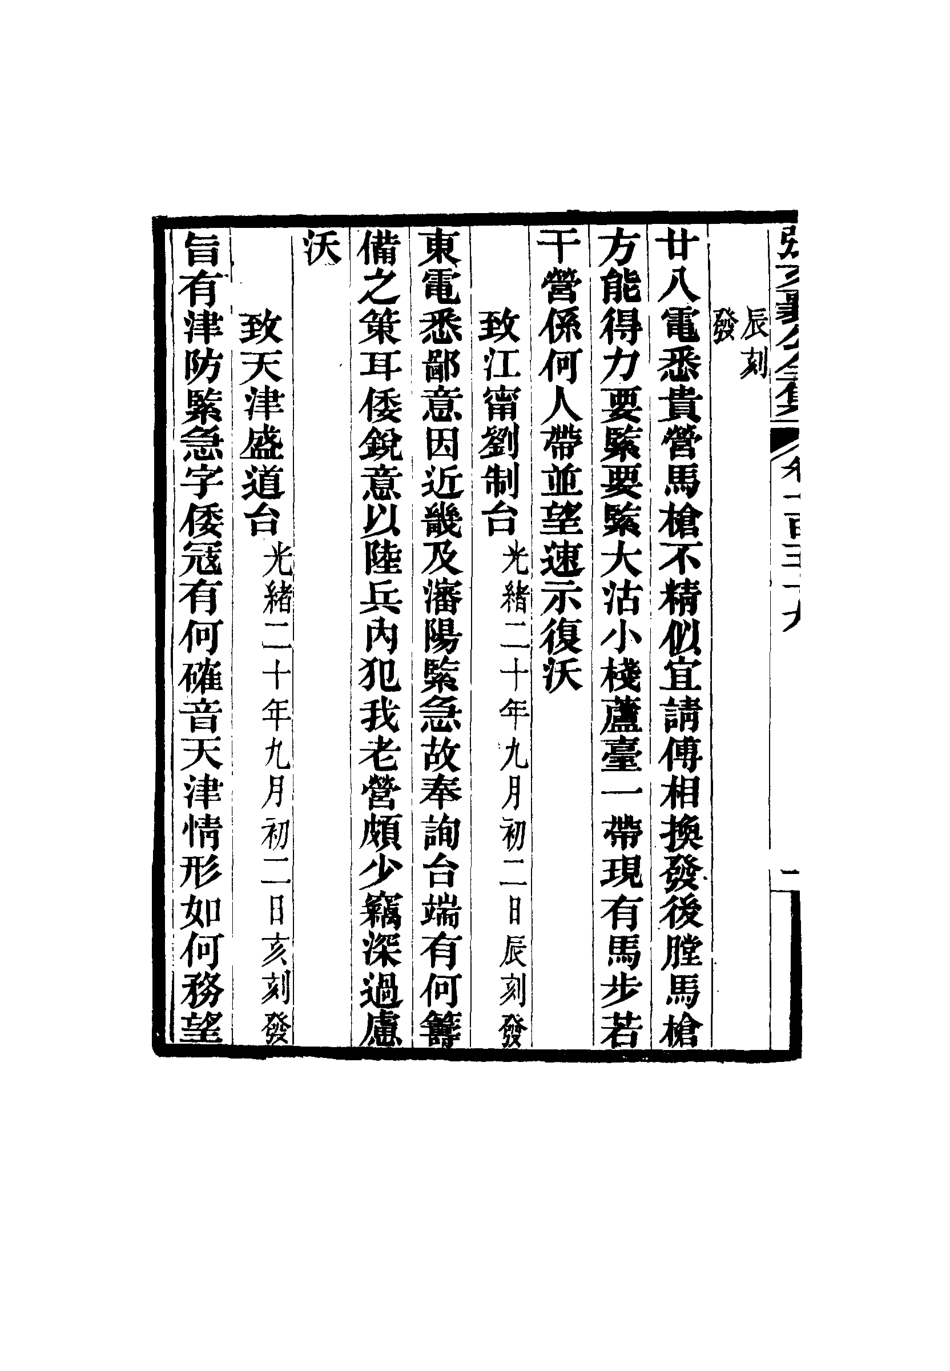 張文襄公全集 卷一百三十八 一
辰刻
發
廿八電悉貴營馬槍不精似宜請傅相換發後膛馬槍
方能得力要緊要緊大沽小棧蘆臺一帶現有馬步若
干營係何人帶並望速示復沃
致江甯劉制台光緒二十年九月初二日辰刻發
東電悉鄙意因近畿及瀋陽緊急故奉詢台端有何籌
備之策耳倭銳意以陸兵內犯我老營頗少竊深過慮
沃
致天津盛道台光緒二十年九月初二日亥刻發
旨有津防緊急字倭冦有何確音天津情形如何務望